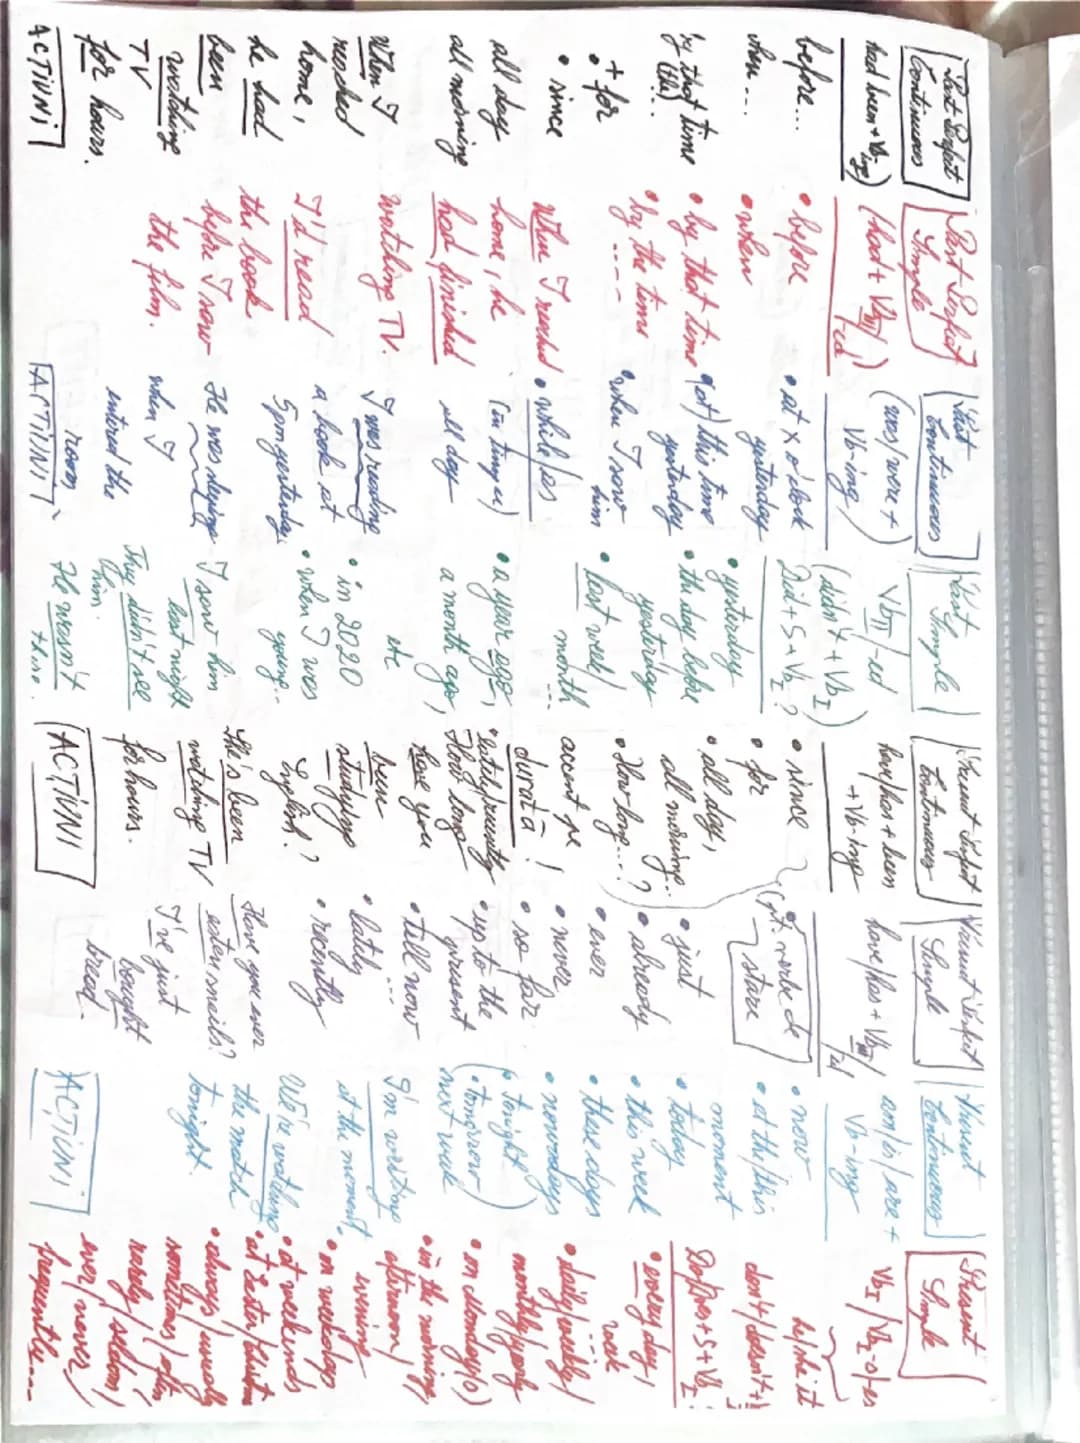 Past Perfect
Continuous
had been + Vb-ing)
before...
when...
by that time
(th)...
+ for
• since
all day
all morning
When I
reached
home,
he had
been
watching
TV
for hours.
ACTIUNI
Past Perfect
Simple
(had + VbIII/
-ed)
• before
• when
• by that time
• by the time
....
When I reached
home, he
had finished
watching TV.
I'd read
the book
before I saw
the film.
Past
Continuous
(was/were +
Vb-ing)
• at x o'clock
yesterday
(at) this time
yesterday
• when I saw
him
• while/as
(în timp ce)
all day
I was reading
a book at
5pm yesterday.
He was sleeping
when I
entered the
room
ACTIUNI
Past
Simple
VbII/-ed
(didn't + VbI)
Did + S + VbI?
• yesterday
• the day before
yesterday
• last week/
month
...
• a year ago,
a month ago,
etc
• in 2020
• when I was
young...
I saw him
last night
They didn't see
him.
He wasn't
there.
Present Perfect
Continuous
have/has + been
+ Vb-ing
• since
• for
• all day,
all morning...
• How long...?
accent pe
durată!
• lately/recently
How long
have you
been
studying
English?
She's been
watching TV
for hours.
ACȚIUNI
Present Perfect
Simple
have/has + VbIII/
ed
verbe de
stare
• just
• already
• ever
• never
• so far
• up to the
present
• till now
...
• lately
• recently
Have you ever
eaten snails?
I've just
bought
bread.
Present
Continuous
am/is/are +
Vb-ing
• now
• at the/this
moment
• today
• this week
• these days
• nowadays
(• tonight
• tomorrow)
next week
I'm writing
at the moment.
We're watching
the match
tonight.
ACȚIUNI
Present
Simple
VbI/VbI-s/es
he/she/it
don't/doesn't +
Do/Does + S + VbI
• every day/
week
...
• daily/weekly/
monthly/yearly
• on Monday(s)
• in the morning/
afternoon/
evening
• on weekdays
• at weekends
• at Easter/Christm
• always/usually
sometimes/often
rarely/seldom/
ever/never/
frequently....